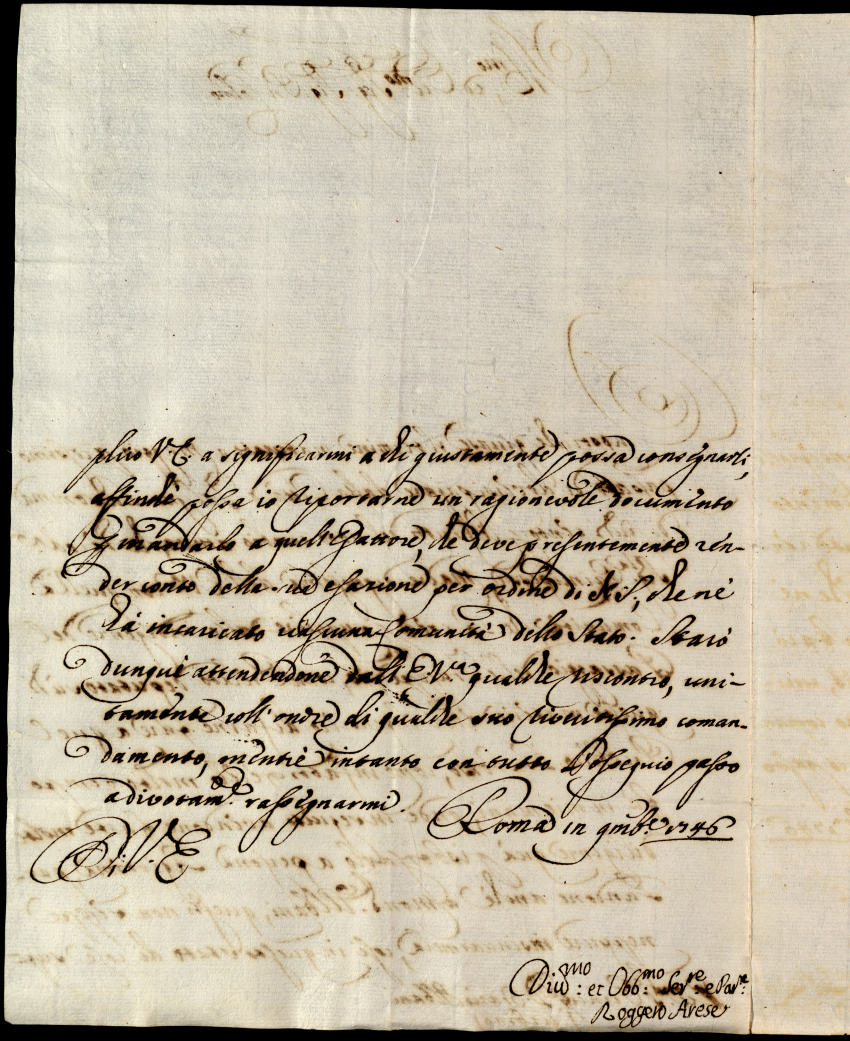 plico V. E. a significarmi a chi giustamente possa consegnarli,
affinchè possa io riportarne un ragionevole documento
p mandarlo a quell'Esattore, che deve presentemente ren-
der conto della sua esazione per ordine di S. S., che ne
hà incaricato ciascuna Comunità dello Stato. Starò
dunque attendendone dall'E. V.ra qualche riscontro, uni-
tamente coll'onore di qualche suo riveritissimo coman-
damento, mentre intanto con tutto l'ossequio passo
a divotam.te rassegnarmi.
Roma in 9mb.e 1746
Di V. E.
Div.mo: et Obb:mo Ser.re: e Par.te:
Roggero Arese